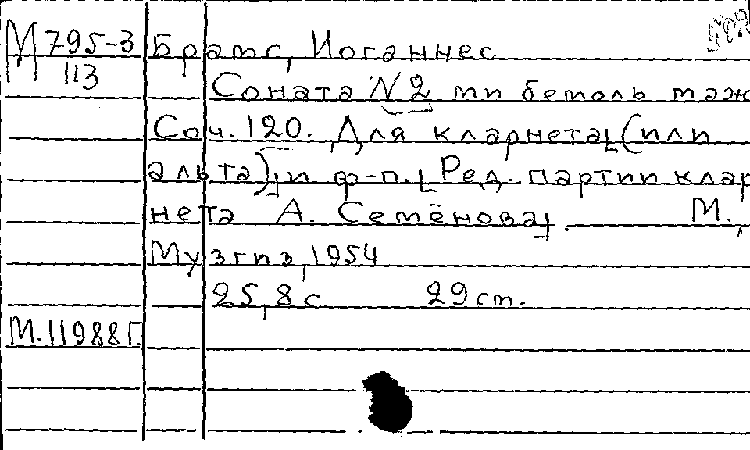 М 795-3
113
Брамс, Иоганнес
Соната №2 ми бемоль маж
Соч. 120. Для кларнета (или
альта) и ф-п. Ред. партииклар
нета А. Семёнова. М.,
Музгиз, 1954
25, 8 с 29 см.
М.11988Г.